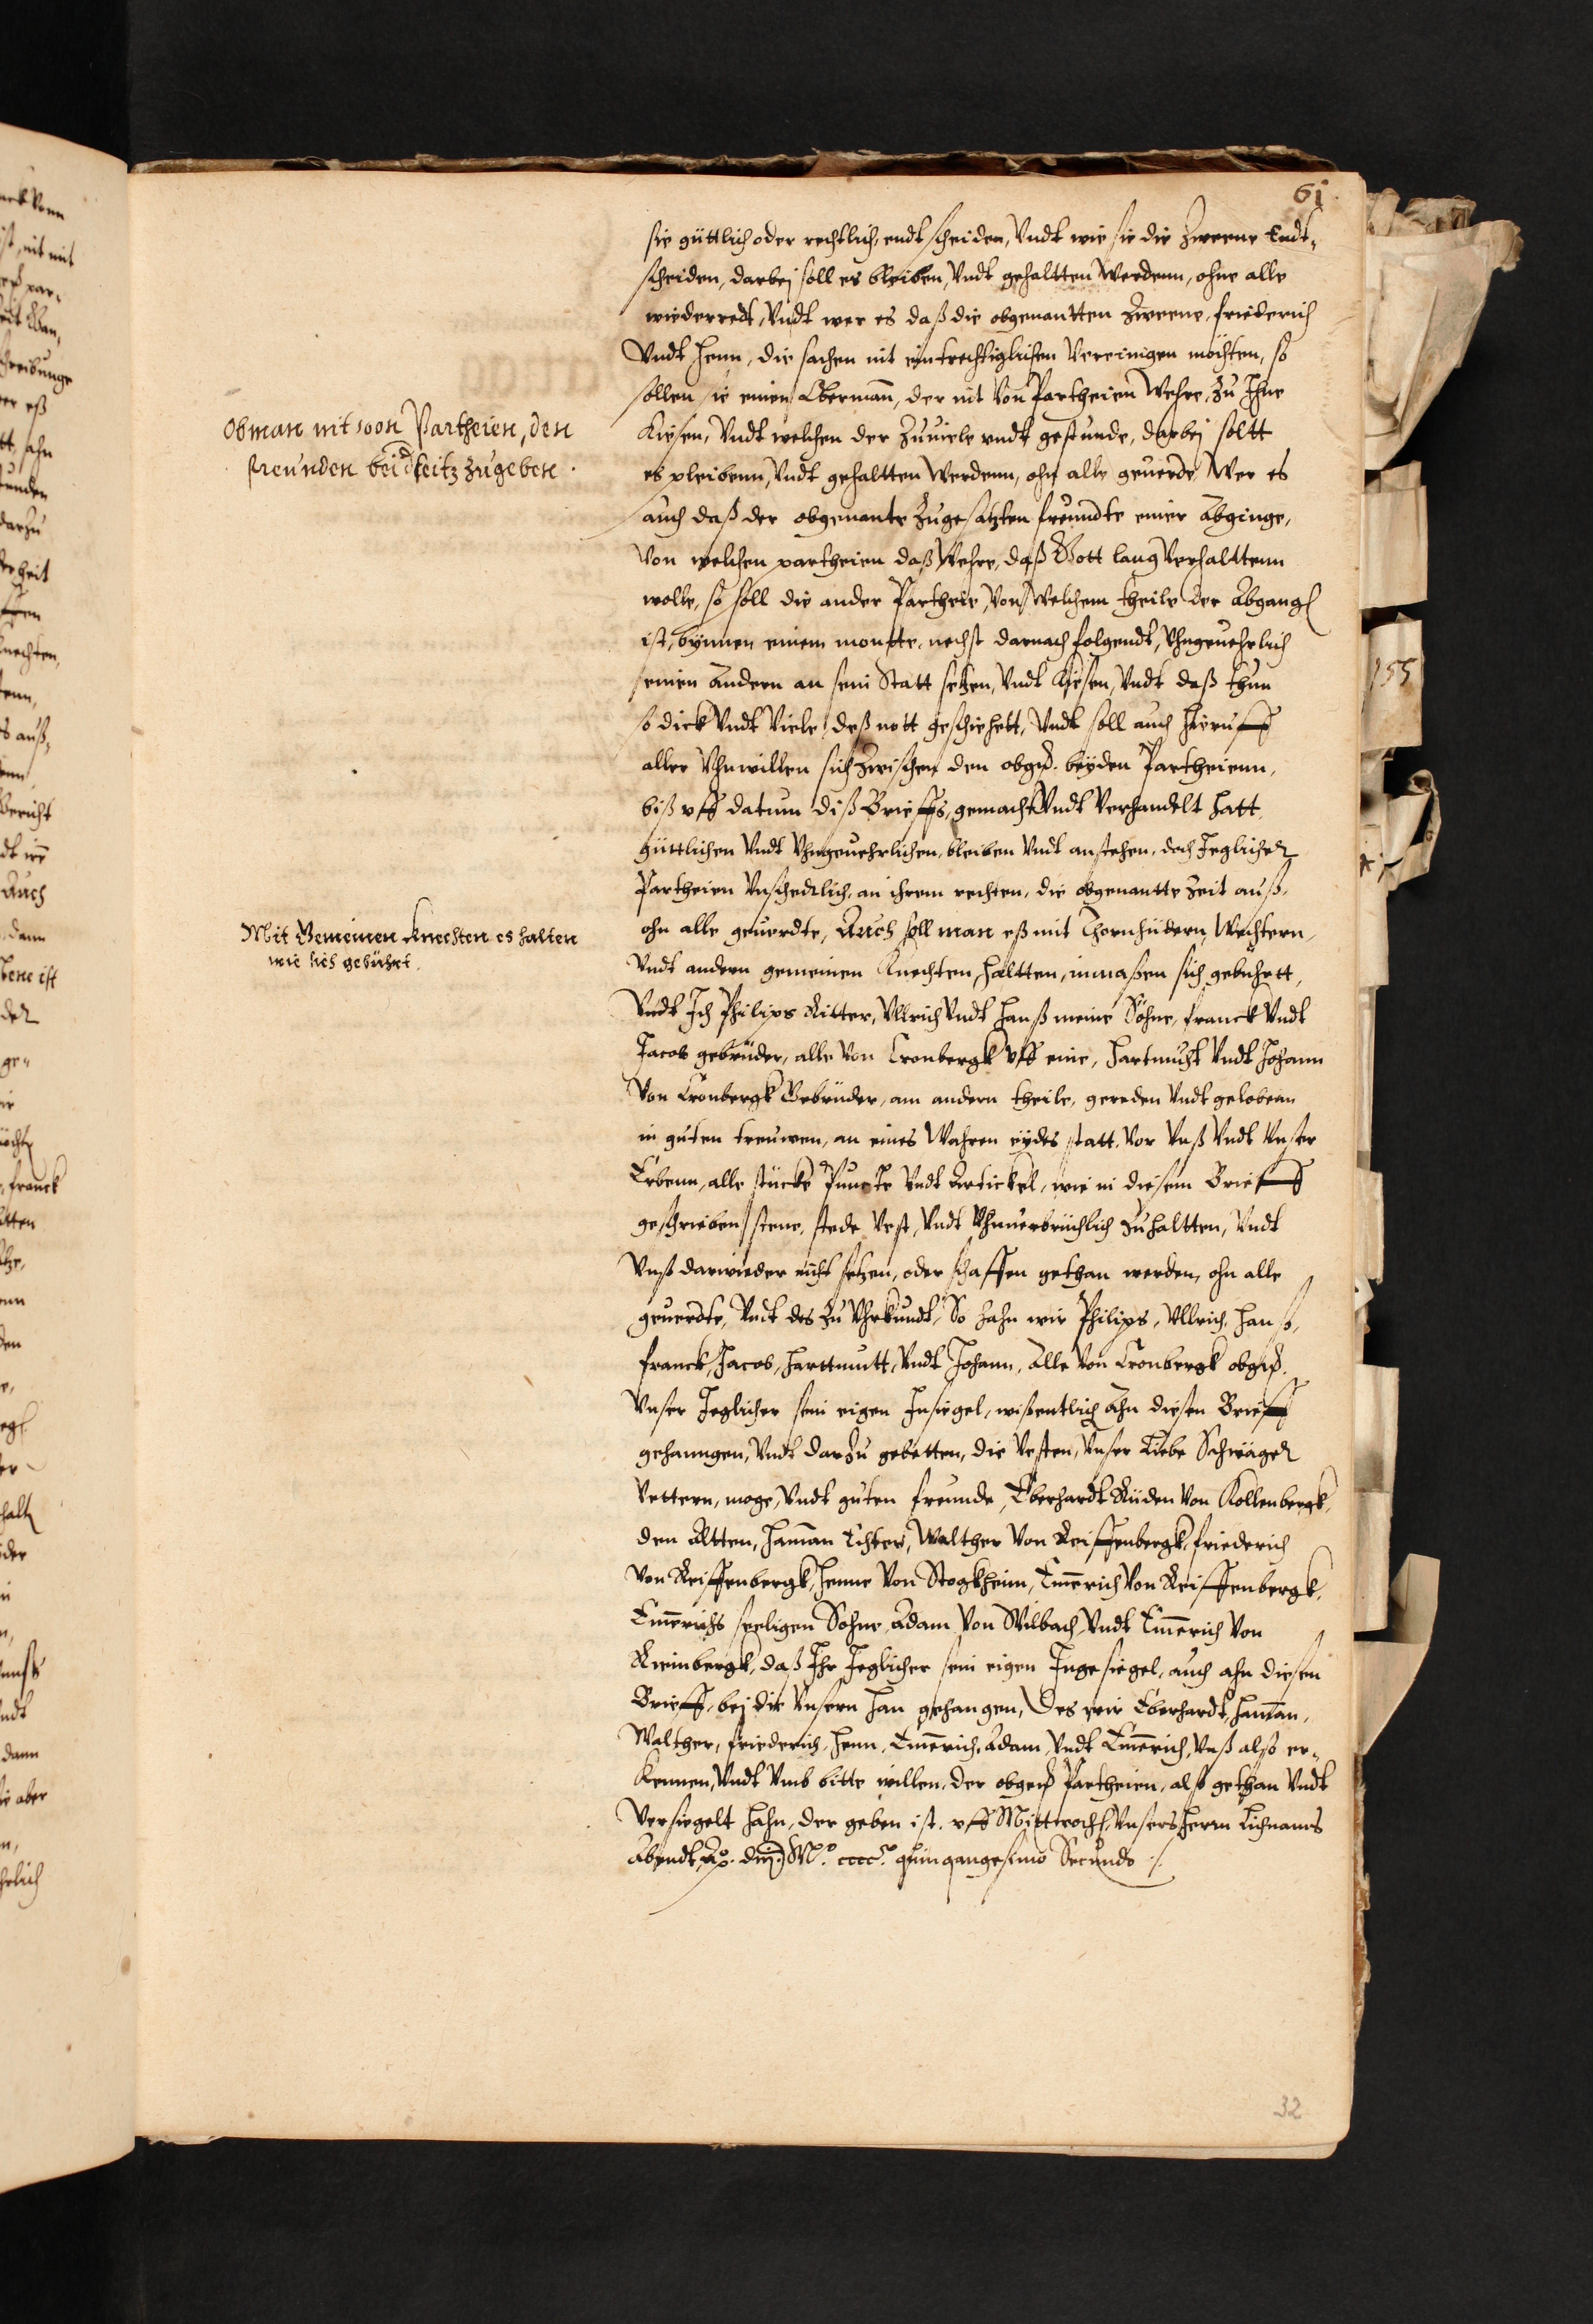 61
sie güttlich oder rechtlich, endtscheiden, Vndt wie sie die Zweene Endt„
scheiden, darbej soll es bleiben, Vndt gehaltten Werdenn, ohne alle
wiederredt, Vndt wer es daß die obgenantten Zweene, friederich
Vndt Henn, die sachen nit eintrechtiglichen Vereinigen möchten, so
sollen sie einen Obermann, der nit Von Partheien Wehre, Zu Ihne
Kiesen, Vndt welchen der Zuuiele vndt gestunde, darbej soltt
es pleibenn, Vndt gehaltten Werdenn, ohn alle geuerde, Wer es
auch daß der obgenante Zugesatzten freundte einer Abginge,
Von welchen partheien daß Wehre, daß Gott lang Verhalttenn
wolle, so soll die ander Partheie, Von Welchem theile der Abgang
ist, bÿnnen einem montte, nechst darnach folgendt, Vhngeuehrlich
seinen Andern an sein Statt setzen, Vndt Kiesen, Vndt daß thun
so dick Vndt Viele deß nott geschiehett, Vndt soll auch hieruff
aller Vhnwillen sich Zwischen den obgd. beÿden Partheienn,
biß vff datum diß Brieffs, gemacht Vndt Verhandelt hatt,
güttlichen Vndt Vhngeuehrlichen, bleiben Vndt anstehen, doch Jeglicher
Partheien Vnschedlich, an ihrem rechten, die obgenantte Zeit auß,
ohn alle geuerdte, Auch soll man eß mit Thornhüdern, Wechtern,
Vndt andern gemeinen Knechten, haltten, inmaßen sich gebuhrtt,
Vndt Ich Philips Ritter, Vllrich Vndt Hanß meine Söhne, franck Vndt
Jacob gebrüder, alle Von Cronbergk vff eine, Hartmuht Vndt Johann
Von Cronbergk Gebrüder, am andern theile, gereden Vndt gelobenn
in guten treuwen, an eines Wahren eÿdes statt, Vor Vnß Vndt Vnser
Erbenn, alle stücke Puncte Vndt Artickel, wie in diesem Brieff
geschrieben stene, stede Vest, Vndt Vhnuerbrüchlich Zuhaltten, Vndt
Vnß darwieder nicht setzen, oder schaffen gethan werden, ohn alle
geuerdte, Vndt des Zu Vhrkundt, So hahn wir Philips, Vllrich, Hanß,
franck, Jacob, Harttmutt, Vndt Johann, Alle Von Cronbergk obgd.
Vnser Jeglicher sein eigen Insiegel, wißentlich Ahn diesen Brieff
gehanngen, Vndt darzu gebetten, die Vesten, Vnser Liebe Schwäger
Vettern, moge, Vndt guten freunde, Eberhardt Rüden Von Kollenbergk,
den Altten, Hamman Echter, Walther Von Reiffenbergk, friederich
Von Reiffenbergk, Henne Von Stogkheim, Emmerich Von Reiffenbergk,
Emmerichs seeligen Sohne, Adam Von Wilbach, Vndt Emmerich Von
Reinbergk, daß Ihr Jeglicher sein eigen Ingesiegel, auch ahn diesen
Brieff, bej die Vnsern han gehangen, Des wir Eberhardt, Hamman,
Walther, friederich, Henn, Emmerich, Adam, Vndt Emmerich, Vnß also er„
kennen, Vndt Vmb bitte willen, der obgd Partheien, also gethan Vndt
Versiegelt hahn, der geben ist, vff Mittwoch, Vnsers Herrn Lichnams
Abendt, Ao. dnj. Mo. cccco. quinquagesimo Secundo ./.
Obman nit von Partheien, den
freunden beiderseitz zugeben.
Mit Gemeinen Knechten es halten
wie sichs gebührt.
155
32